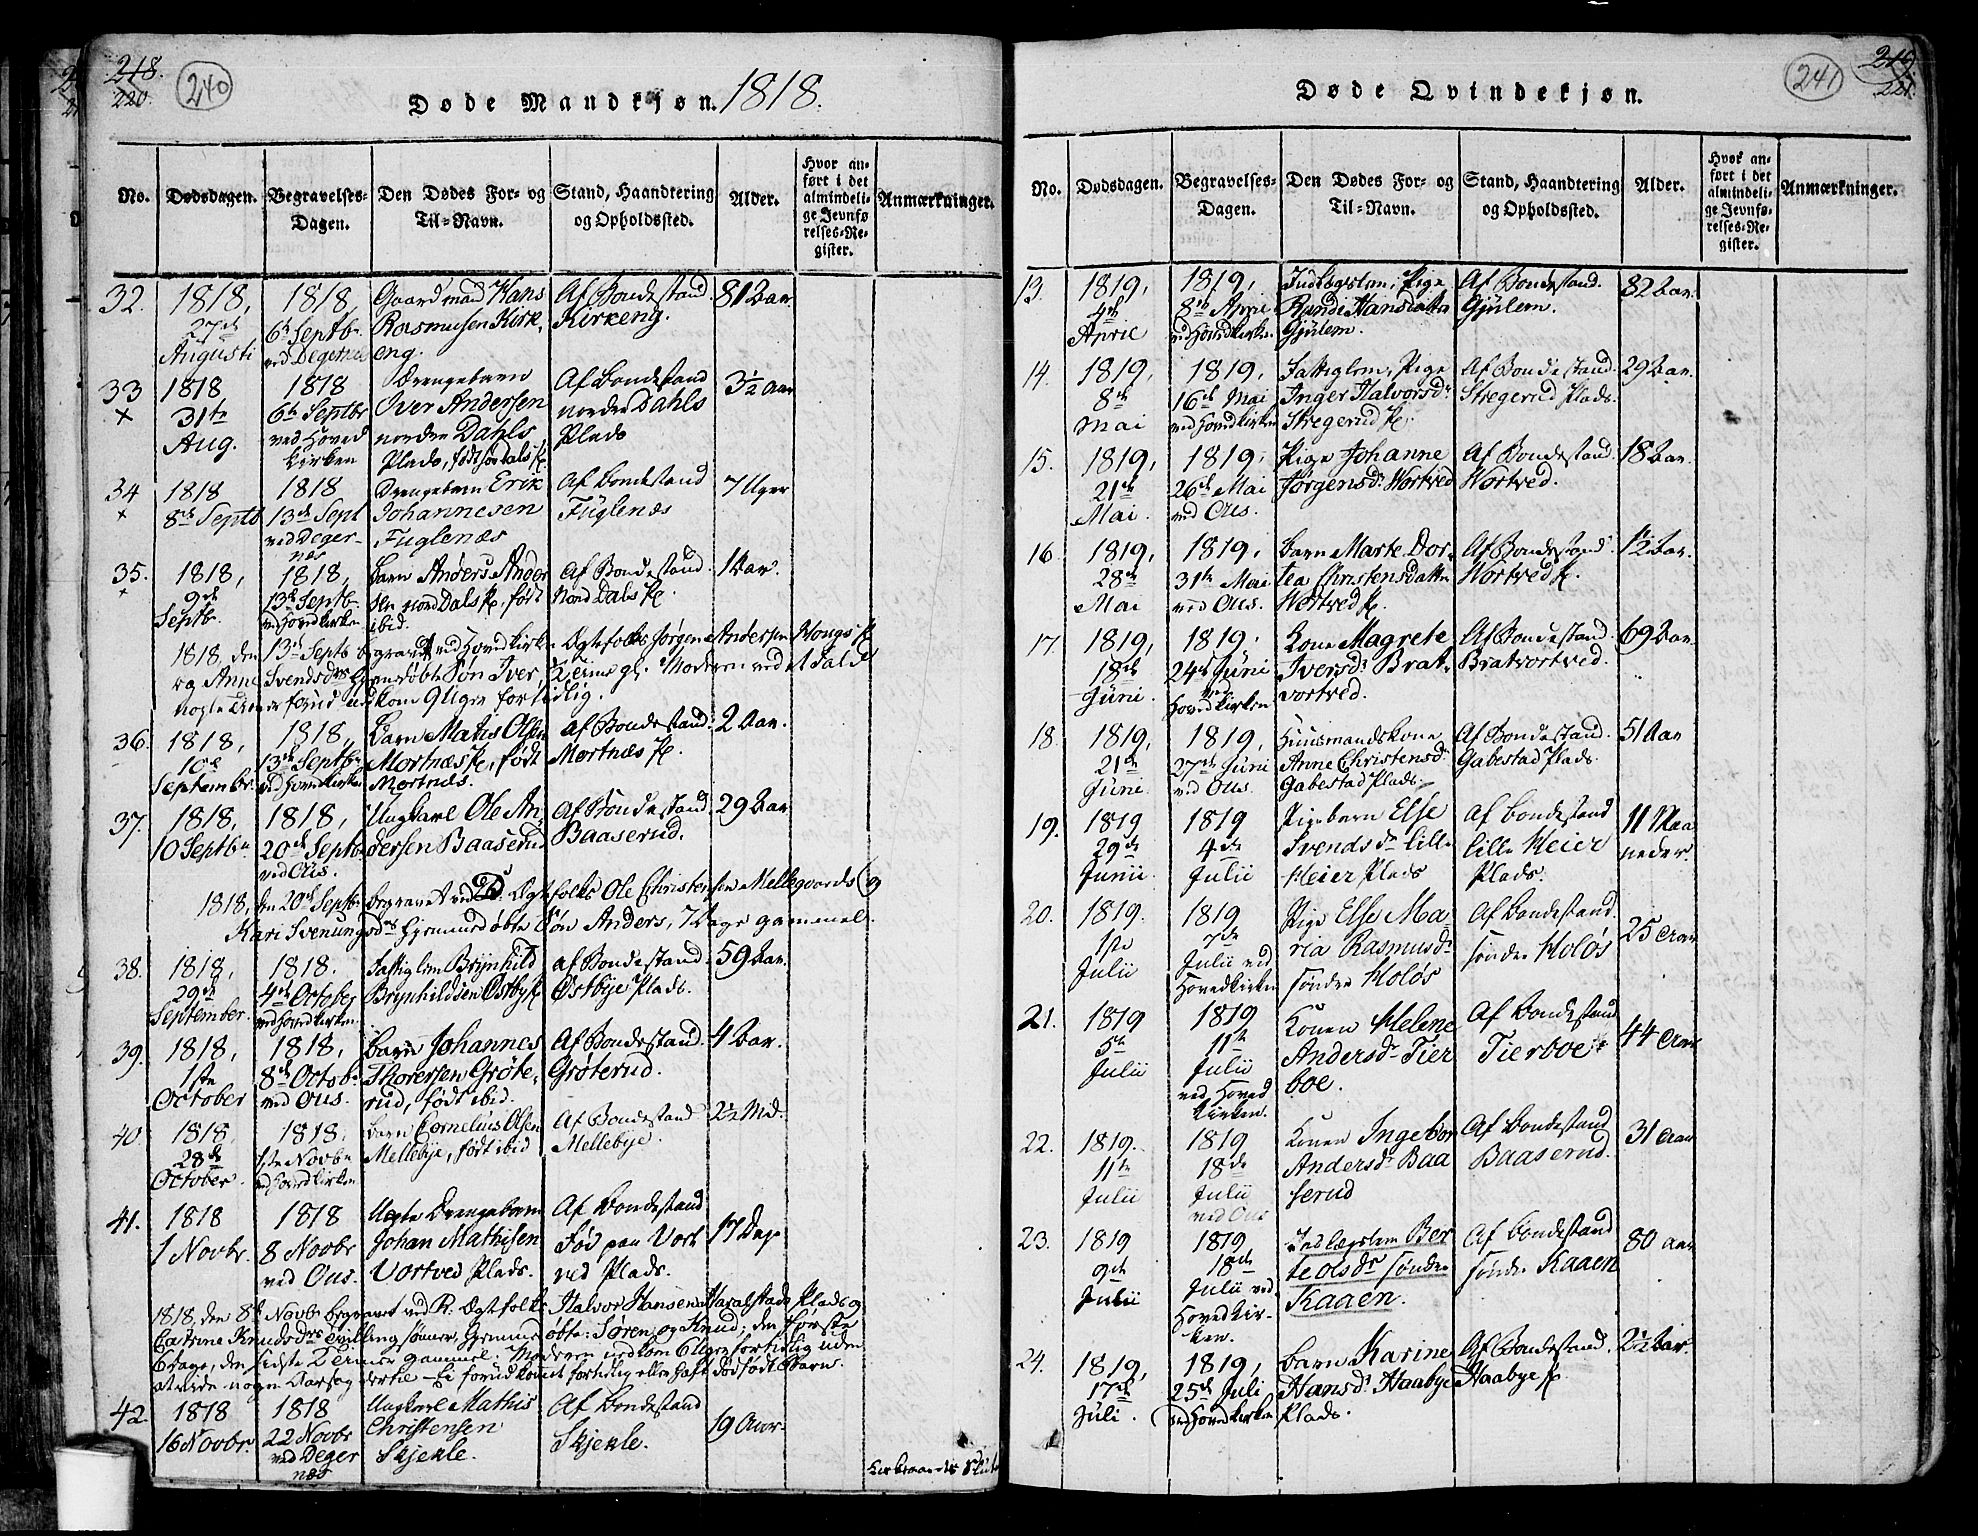 218.
220.
240
Døde Mandkjøn. 1818.
No.
Dødsdagen.
Begravelses-
Dagen.
Den Dødes For- og
Til-Navn.
Stand, Haandtering
og Opholdssted.
Alder.
Hvor an-
ført i det
almindeli-
ge Jevnfø-
relses-Re-
gister.
Anmærkninger.
32.
1818,
27de
Augusti
1818,
6te Septbr
ved Degernes
Gaardmand Hans
Rasmusen Kirk-
eng.
Af Bondestand
Kirkeng.
81 Aar
33
×
1818
31te
Aug.
1818
6te Septbr
ved Hoved
kirken
Drengebarn
Over Andersen
nordre Dahls
Plads, født
Af Bondestand
nordre Dahls
Plads
3½ aar
34
×
1818
8de Septb
1818
13de Sept
ved Deger-
nes
Drengebarn Erik
Johannesen
Fuglenæs
Af Bondestand
Fuglenæs
7 Uger
35.
×
1818,
9de
Septb.
1818,
13de Septb.
ved Hovedkirken
Barn Anders Ander
sen nord Dals Pl, født
ibid.
Af Bondestand.
Nord Dals Pl.
1 Aar.
1818, den 13de Septb begravet ved Hovedkirken Ægtefolks Jørgen Andersen
og Anne Svendsdrs hjemmedøbte Søn Iver,
nedkom 9 Uger for tidlig.
36.
1818,
10de
Septembr.
1818,
13de Septbr
ved Hovedkirken
Barn Mathis Olsen
Mortnæs Pl, født
Mortnæs.
Af Bondestand.
Mortnæs Pl.
2 Aar.
37.
1818,
10 Septbr.
1818,
20de Septb
ved Ous.
Ungkarl Ole An-
dersen Baaserud
Af Bondestand.
Baaserud.
29 Aar
1818, den 20de Septb begravet ved Ægtefolks Ole Christensen Mellegaards og
Kari Svenungsdrs hjemmedøbte Søn Anders, 7 Dage gammel.
38.
1818,
29de
September.
1818.
4de October
ved Hovedkirken
Fattiglem Brynhild
Brynhildsen Østby Pl
af Bondestand.
Østbye Plads.
59 Aar.
39.
1818,
1ste
October
1818,
8de Octob.
ved Ous.
Barn Johannes
Thorersen Grøte-
rud, født ibid.
Af Bondestand.
Grøterud.
4 Aar.
40
1818,
28de
October.
1818,
1ste Novbr
ved Hovedkirken
Barn Cornelius Olsen
Mellebye, født ibid
Af Bondestand
Mellebye.
2½ Md.
41.
1818
1 Novbr.
1818
8 Novbr
ved Ous.
Uegte Drengebarn
Johan Mathisen
Vortved Plads.
Af Bondestand
Fød paa Vort
ved Plads.
17 Dage
1818, den 8de Novbr begravet ved Ægtefolks Halvor Hansen Haralstads Plads og
Catrine Knudsdrs Tvillingsønner, hjemmedøbte: Søren og Knud; den første
6 Dage, den sidste gammel. Moderen nedkom 6 Uger for tidlig uden
at vide nogen Aarsag dertil – Ei forud kommet fortidlig eller haft dødfødt Barn.
42
1818
16 Novbr.
1818
22 Novbr
ved Deger
næs
Ungkarl Mathis
Christensen
Skjekle.
Af Bondestand
Skjekle.
19 Aar.
241
219
221.
Døde Qvindekjøn.
No.
Dødsdagen.
Begravelses-
Dagen.
Den Dødes For- og
Til-Navn.
Stand, Haandtering
og Opholdssted.
Alder.
Hvor an-
ført i det
almindeli-
ge Jevnfø-
relses-Re-
gister.
Anmærkninger.
13.
1819,
4de
April
1819,
8de April
ved Hovedkirken
Indlægslem, Pige
Rønde Hansdatter
Gjulem.
Af Bondestand.
Gjulem.
82 Aar.
14.
1819,
8de
Mai
1819,
16de Mai
ved Hovedkirken
Fattiglem, Pige
Inger Halvorsdr
Stregerud Pl.
Af Bondestand.
Stregerud Plads.
29 Aar.
15.
1819,
21de
Mai.
1819,
26de Mai
ved Ous.
Pige Johanne
Jørgensdr Wortved
Af Bondestand.
Wortved.
18 Aar.
16.
1819,
28de
Mai
1819,
31te Mai
ved Ous.
Barn Marte Dor-
tea Christensdatter
Wortved Pl.
Af Bondestand.
Wortved Pl.
1½ Aar.
17.
1819,
18de
Juni
1819,
24de Juni
ved
Hovedkirken
Kone Magrete
Iversdr Brat-
vortved.
Af Bondestand.
Bratvortved.
69 Aar.
18.
1819,
21de
Juni.
1819,
27de Juni
ved Ous.
Huusmandskone
Anne Christensdr
Gabestad Plads.
Af Bondestand.
Gabestad Plads.
51 Aar
19.
1819
29de
Junii
1819
4de
Julii
Pigebarn Else
Svendsdr lille
Heier Plads
Af Bondestand
lille Heier
Plads.
11 Maa
neder.
20.
1819.
1ste
Julii
1819
7de
Julii ved
Hovedkirken
Pige Else Ma
ria Rasmusdr
søndre Holøs
Af Bondestand.
søndre Holøs
25 Aar
21.
1819
5te
Julii
1819
11te
Julii
ved Hoved
kirken.
Konen Helene
Andersdr Tier
boe.
Af Bondestand
Tierboe
44 Aar
22.
1819.
11te
Julii
1819
18de
Julii
ved Ous
Konen Ingebor
Andersdr Baa
serud
Af Bondestand
Baaserud.
31 Aar
23.
1819
9de
Julii
1819
18de
Julii ved
Hovedkir-
ken.
Indlægslem Ber
teolsdr søndre
Kaaen.
Af Bondestand
søndre Kaaen
80 aar
24.
1819,
17de
Juli.
1819,
25de Juli
ved Hovedkirken
Barn Karine
Hansdr Haabye
Plads.
Af Bondestand.
Haabye Pl.
2½ Aar.